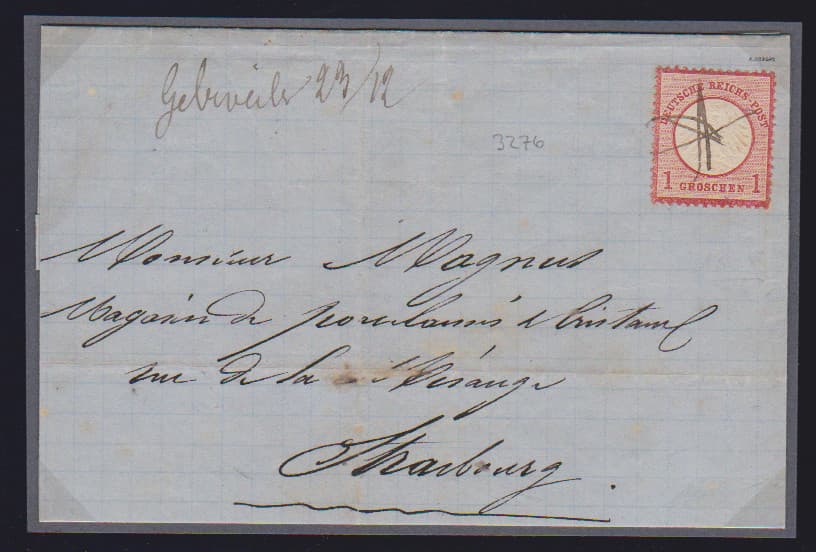 Gebweiler 23/12
3276
DEUTSCHE REICHS-POST
1 GROSCHEN 1
Monsieur Magnus
Magasin de porcelaines & Cristaux
rue de la Mésange
Strasbourg.